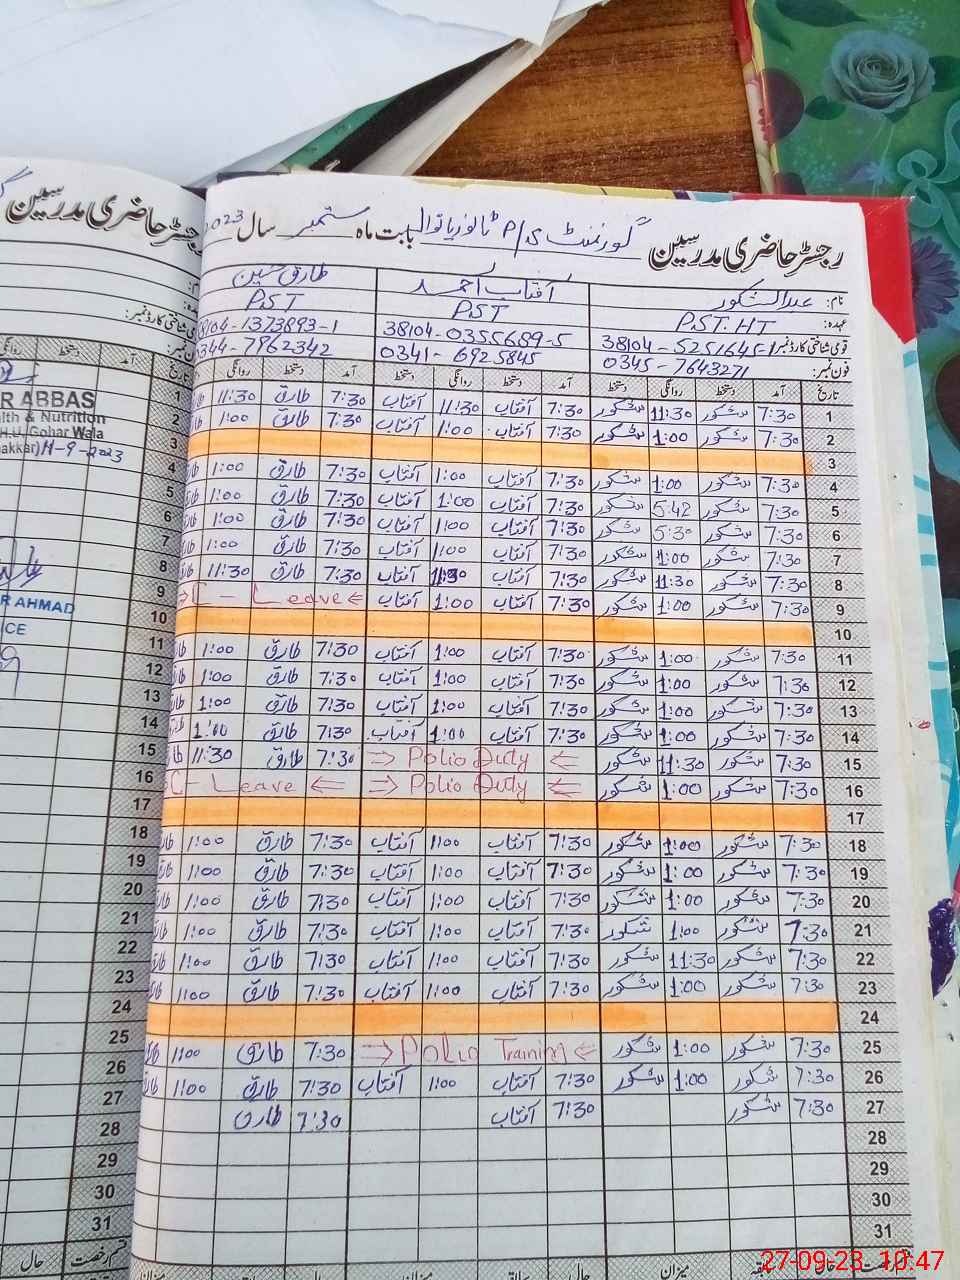 رجسٹر حاضری مدرسین گورنمنٹ P/S بابت ماہ ستمبر سال 2023
نام: عبدالشکور آفتاب احمد طارق حسین
عہدہ: PST.HT PST PST
قومی شناختی کارڈ نمبر: 38104-5251645-1 38104-0355689-5 38104-1373893-1
فون نمبر: 0345-7643271 0341-6925845 0344-7962342
تاریخ آمد دستخط روانگی دستخط آمد دستخط روانگی دستخط آمد دستخط روانگی
1 7:30 شکور 11:30 شکور 7:30 آفتاب 11:30 آفتاب 7:30 طارق 11:30
2 7:30 شکور 1:00 شکور 7:30 آفتاب 1:00 آفتاب 7:30 طارق 1:00
3
4 7:30 شکور 1:00 شکور 7:30 آفتاب 1:00 آفتاب 7:30 طارق 1:00
5 7:30 شکور 5:42 شکور 7:30 آفتاب 1:00 آفتاب 7:30 طارق 1:00
6 7:30 شکور 5:30 شکور 7:30 آفتاب 1:00 آفتاب 7:30 طارق 1:00
7 7:30 شکور 1:00 شکور 7:30 آفتاب 1:00 آفتاب 7:30 طارق 1:00
8 7:30 شکور 11:30 شکور 7:30 آفتاب 11:30 آفتاب 7:30 طارق 11:30
9 7:30 شکور 1:00 شکور 7:30 آفتاب 1:00 آفتاب C - Leave
10
11 7:30 شکور 1:00 شکور 7:30 آفتاب 1:00 آفتاب 7:30 طارق 1:00
12 7:30 شکور 1:00 شکور 7:30 آفتاب 1:00 آفتاب 7:30 طارق 1:00
13 7:30 شکور 1:00 شکور 7:30 آفتاب 1:00 آفتاب 7:30 طارق 1:00
14 7:30 شکور 1:00 شکور 7:30 آفتاب 1:00 آفتاب 7:30 طارق 1:00
15 7:30 شکور 11:30 شکور Polio Duty 7:30 طارق 11:30
16 7:30 شکور 1:00 شکور Polio Duty C - Leave
17
18 7:30 شکور 1:00 شکور 7:30 آفتاب 1:00 آفتاب 7:30 طارق 1:00
19 7:30 شکور 1:00 شکور 7:30 آفتاب 1:00 آفتاب 7:30 طارق 1:00
20 7:30 شکور 1:00 شکور 7:30 آفتاب 1:00 آفتاب 7:30 طارق 1:00
21 7:30 شکور 1:00 شکور 7:30 آفتاب 1:00 آفتاب 7:30 طارق 1:00
22 7:30 شکور 11:30 شکور 7:30 آفتاب 1:00 آفتاب 7:30 طارق 1:00
23 7:30 شکور 1:00 شکور 7:30 آفتاب 1:00 آفتاب 7:30 طارق 1:00
24
25 7:30 شکور 1:00 شکور Polio Training 7:30 طارق 1:00
26 7:30 شکور 1:00 شکور 7:30 آفتاب 1:00 آفتاب 7:30 طارق 1:00
27 7:30 شکور 7:30 آفتاب 7:30 طارق
28
29
30
31
میزان حال میزان
رجسٹر حاضری مدرسین
قومی شناختی کارڈ نمبر:
فون نمبر:
تاریخ آمد دستخط روانگی
R ABBAS
lth & Nutrition
H.U. Gohar Wala
akkar) 11-9-2023
R AHMAD
ICE
1
2
3
4
5
6
7
8
9
10
11
12
13
14
15
16
17
18
19
20
21
22
23
24
25
26
27
28
29
30
31
قسم رخصت حال
27-09-23 10:47